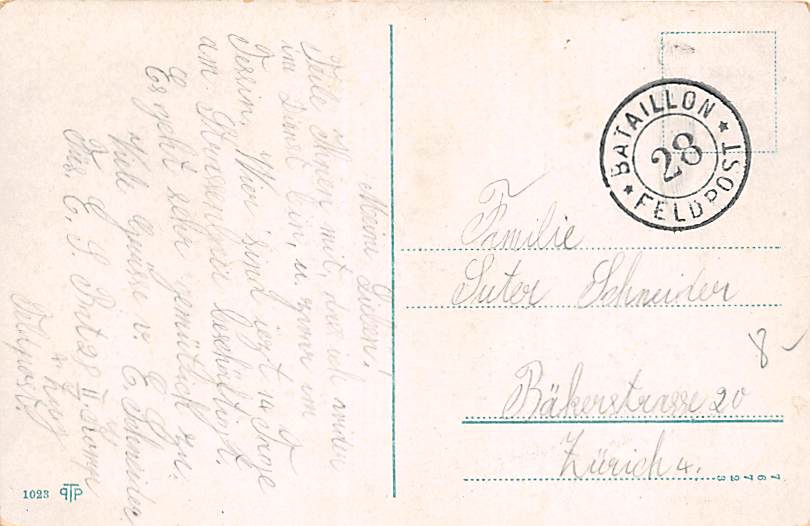 Meine Lieben!
Teile Ihnen mit, das ich wieder
im Dienst bin, u. zwar im
Tessin. Wier sind jezt 14 Tage
am Strassenbau beschäftigt.
Es geht sehr gemütlich zu.
Viele Grüsse v. E. Schneider
Füs. E. S. Bat 28 II Komp
4. Zug
Feldpost.
BATAILLON
28
FELDPOST
Familie
Suter Schneider
8-
Bäkerstrasse 20
Zürich 4.
1023 PTP
7 6 7 2 3